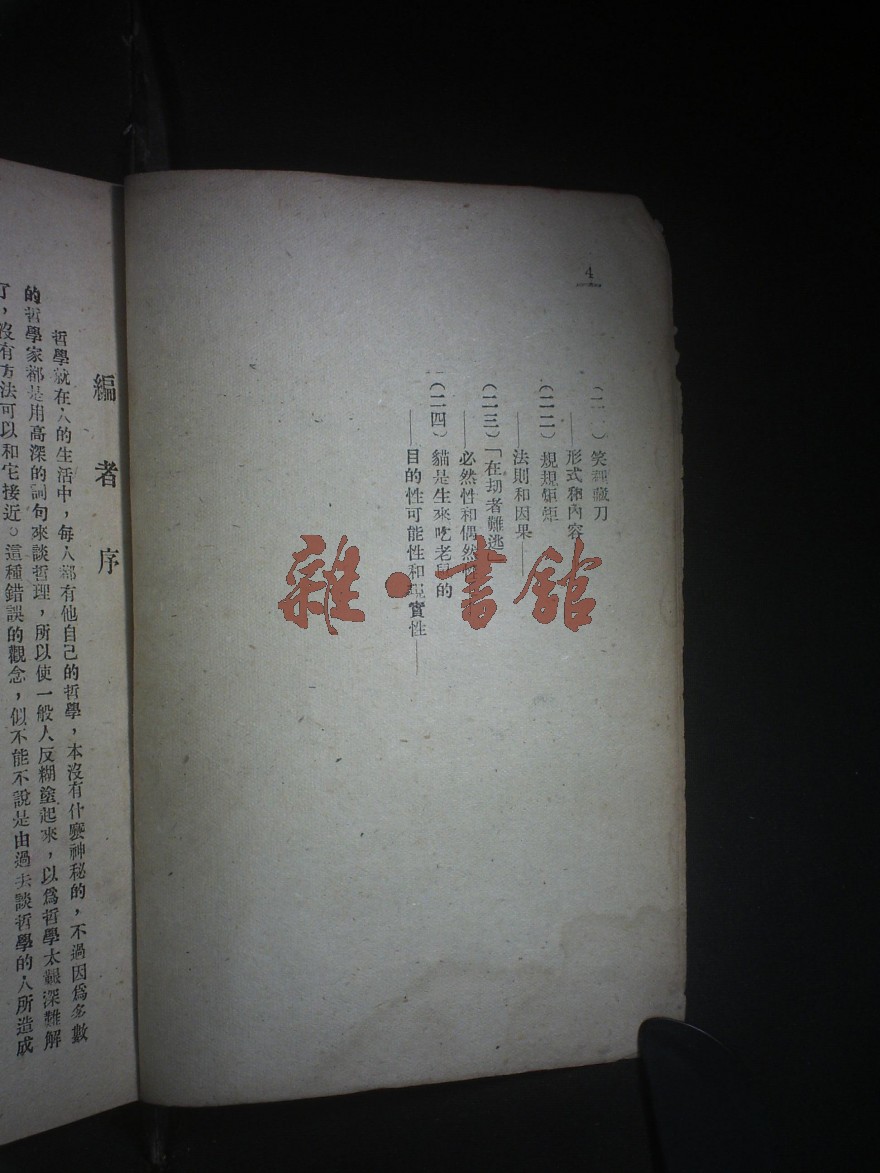 4
(二一)笑裡藏刀
——形式和內容
(二二)規規矩矩
——法則和因果——
(二三)「在劫者難逃
——必然性和偶然性
(二四)貓是生來吃老鼠的
——目的性可能性和現實性——
雜·書館
編者序
哲學就在人的生活中，每人都有他自己的哲學，本沒有什麼神秘的，不過因爲多數
的哲學家都是用高深的詞句來談哲理，所以使一般人反糊塗起來，以爲哲學太艱深難解
了，沒有方法可以和它接近。這種錯誤的觀念，似不能不說是由過去談哲學的人所造成